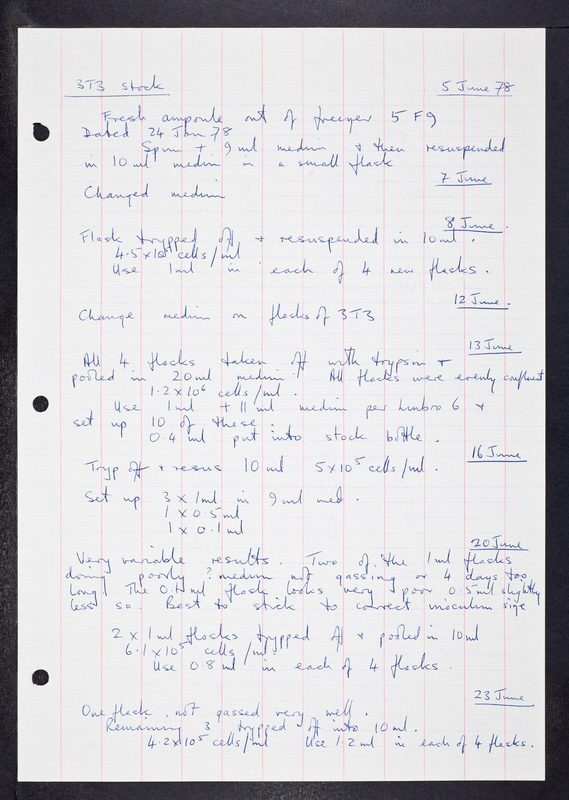 3T3 stock 5 June 78
Fresh ampoule out of freezer 5 F9
Dated 24 Jan 78
Spun + 9 ml medium & then resuspended
in 10 ml medium in a small flask
7 June
Changed medium
8 June.
Flask trypped off + resuspended in 10ml.
4.5 x 10⁵ cells/ml
Use 1ml in each of 4 new flasks.
12 June.
Change medium on flasks of 3T3
13 June
All 4 flasks taken off with trypsin +
pooled in 20ml medium. All flasks were evenly confluent
1.2 x 10⁶ cells/ml.
Use 1ml + 11 ml medium per Linbro 6 &
set up 10 of these.
0.4 ml put into stock bottle.
16 June
Tryp off + resus 10 ml 5x10⁵ cells/ml.
Set up 3 x 1ml in 9 ml med.
1 x 0.5ml
1 x 0.1ml
20 June
Very variable results. Two of the 1ml flasks
doing poorly ? medium not gassing or 4 days too
long. The 0.1 ml flask looks very poor 0.5ml slightly
less so. Best to stick to correct inoculum size
2 x 1ml flasks trypped off + pooled in 10ml
6.1 x 10⁵ cells/ml.
Use 0.8 ml in each of 4 flasks.
23 June
One flask not gassed very well.
Remaining 3 trypped off into 10ml.
4.2x10⁵ cells/ml Use 1.2ml in each of 4 flasks.